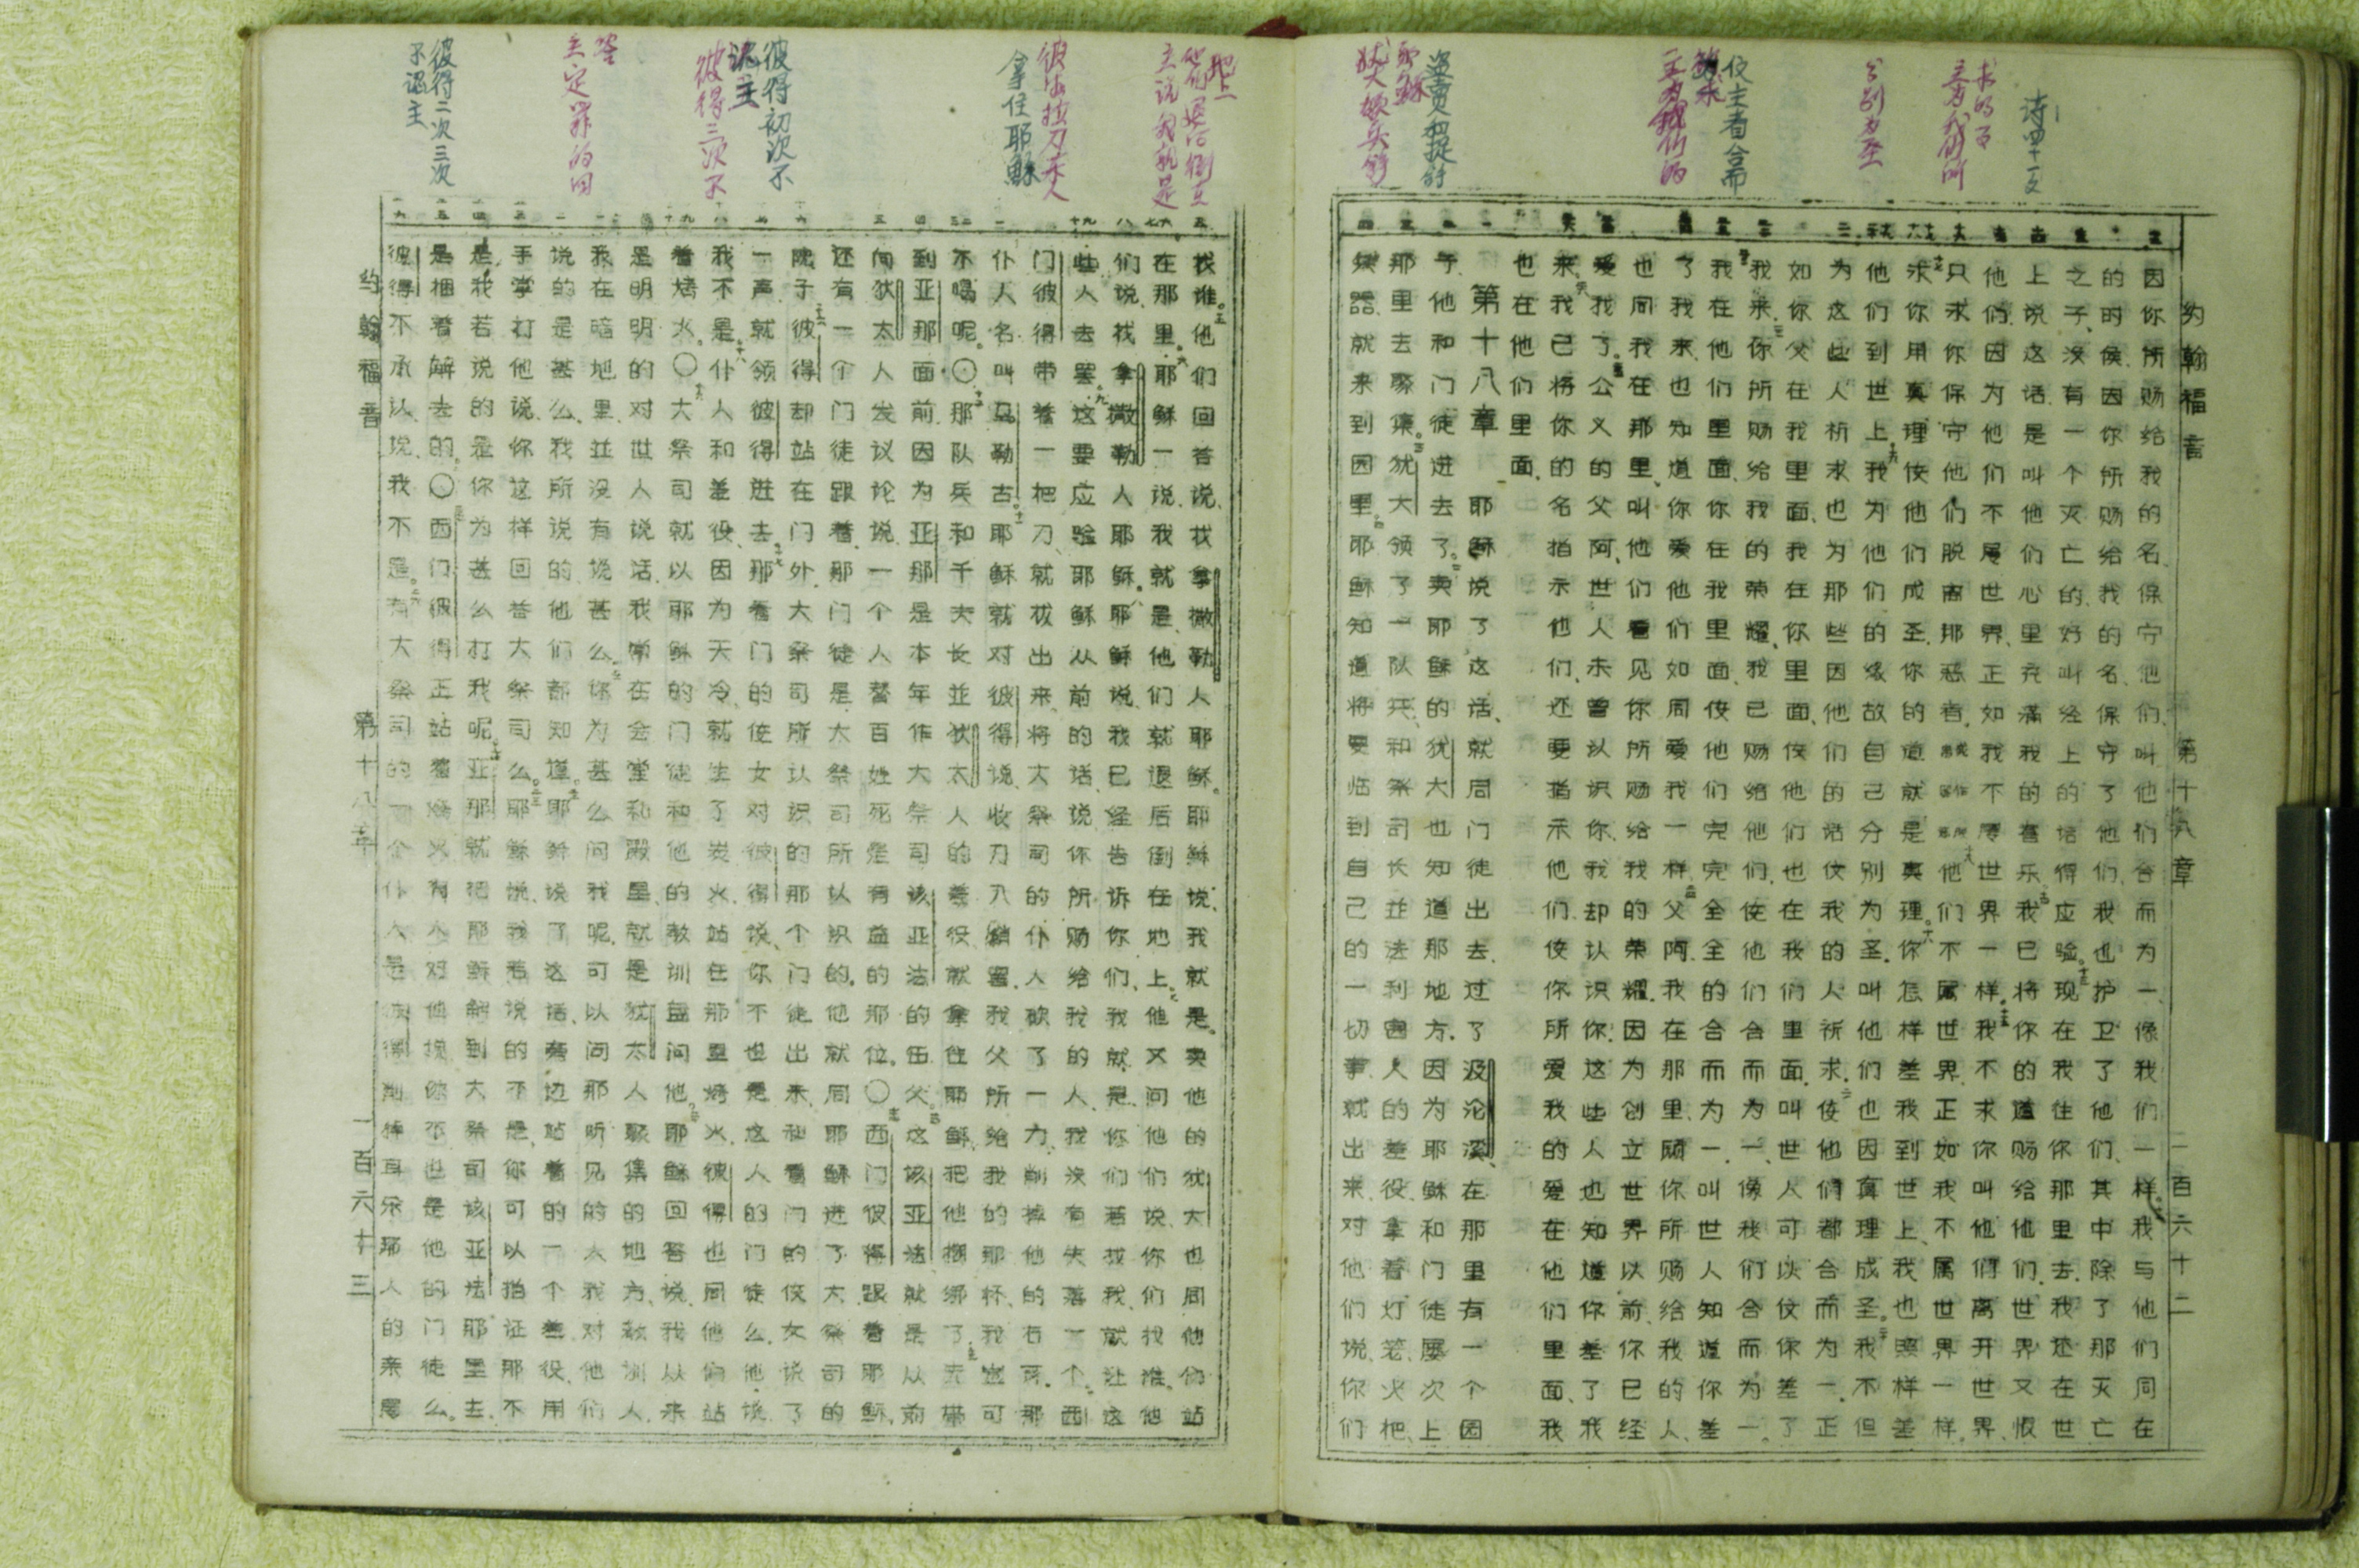 诗四十一文
主为我们
分别为圣
伩主者合而
盗卖和捉
耶稣
约翰福音
第十八章
一百六十二
因你所赐给我的名、保守他们、叫他们合而为一、像我们一样。我与他们同在
的时候、因你所赐给我的名、保守了他们、我也护卫了他们、其中除了那灭亡
之子、没有一个灭亡的、好叫经上的话得应验。现在我往你那里去、我还在世
上说这话、是叫他们心里充满我的喜乐。我已将你的道赐给他们、世界又恨
他们、因为他们不属世界、正如我不属世界一样。我不求你叫他们离开世界、
只求你保守他们脱离那恶者、他们不属世界、正如我不属世界一样。
求你用真理使他们成圣、你的道就是真理。你怎样差我到世上、我也照样差
他们到世上。我为他们的缘故、自己分别为圣、叫他们也因真理成圣。我不但
为这些人祈求、也为那些因他们的话伩我的人祈求。使他们都合而为一、正
如你父在我里面、我在你里面、使他们也在我里面、叫世人可以伩你差了
我来。你所赐给我的荣耀、我已赐给他们、使他们合而为一、像我们合而为一。
我在他们里面、你在我里面、使他们完完全全的合而为一、叫世人知道你差
了我来、也知道你爱他们如同爱我一样。父阿、我在那里、愿你所赐给我的人、
也同我在那里、叫他们看见你所赐给我的荣耀、因为创立世界以前、你已经
爱我了。公义的父阿、世人未曾认识你、我却认识你、这些人也知道你差了我
来。我已将你的名指示他们、还要指示他们、使你所爱我的爱在他们里面、我
也在他们里面。
第十八章 耶稣说了这话、就同门徒出去、过了汲沦溪、在那里有一个园
子、他和门徒进去了。卖耶稣的犹大也知道那地方、因为耶稣和门徒屡次上
那里去聚集。犹大领了一队兵、和祭司长並法利害人的差役、拿着灯笼火把、
兵器、就来到园里。耶稣知道将要临到自己的一切事、就出来、对他们说、你们
他们退后倒在地上
主说我就是
彼得拉刀杀人
拿住耶稣
彼得初次不认主
彼得三次不
主定罪的
彼得二次三次
不认主
找谁。他们回答说、找拿撒勒人耶稣。耶稣说、我就是。卖他的犹大也同他们站
在那里。耶稣一说我就是、他们就退后倒在地上。他又问他们说、你们找谁。他
们说、找拿撒勒人耶稣。耶稣说、我已经告诉你们、我就是、你们若找我、就让这
些人去罢。这要应验耶稣从前的话、说、你所赐给我的人、我没有失落一个。西
门彼得带着一把刀、就拔出来、将大祭司的仆人砍了一刀、削掉他的右耳、那
仆人名叫马勒古。耶稣就对彼得说、收刀入鞘罢、我父所给我的那杯、我岂可
不喝呢。〇那队兵和千夫长、並犹太人的差役、就拿住耶稣、把他捆绑了、先带
到亚那面前、因为亚那是本年作大祭司该亚法的岳父。这该亚法就是从前
向犹太人发议论说、一个人替百姓死是有益的那位。〇西门彼得跟着耶稣、
还有一个门徒跟着、那门徒是大祭司所认识的、他就同耶稣进了大祭司的
院子、彼得却站在门外、大祭司所认识的那个门徒出来、和看门的使女说了
一声、就领彼得进去。那看门的使女对彼得说、你不也是这人的门徒么、他说、
我不是。仆人和差役、因为天冷、就生了炭火、站在那里烤火、彼得也同他们站
着烤火。〇大祭司就以耶稣的门徒和他的教训盘问他。耶稣回答说、我从来
是明明的对世人说话、我常在会堂和殿里、就是犹太人聚集的地方、教训人、
我在暗地里並没有说甚么、你为甚么问我呢、可以问那听见的人、我对他们
说的是甚么、我所说的他们都知道。耶稣说了这话、旁边站着的一个差役、用
手掌打他说、你这样回答大祭司么。耶稣说、我若说的不是、你可以指证那不
是、我若说的是、你为甚么打我呢。亚那就把耶稣解到大祭司该亚法那里去、
是捆着解去的。〇西门彼得正站着烤火、有人对他说、你不也是他的门徒么。
彼得不承认、说、我不是。有大祭司的一个仆人、是彼得削掉耳朵那人的亲属
约翰福音
第十八章
一百六十三